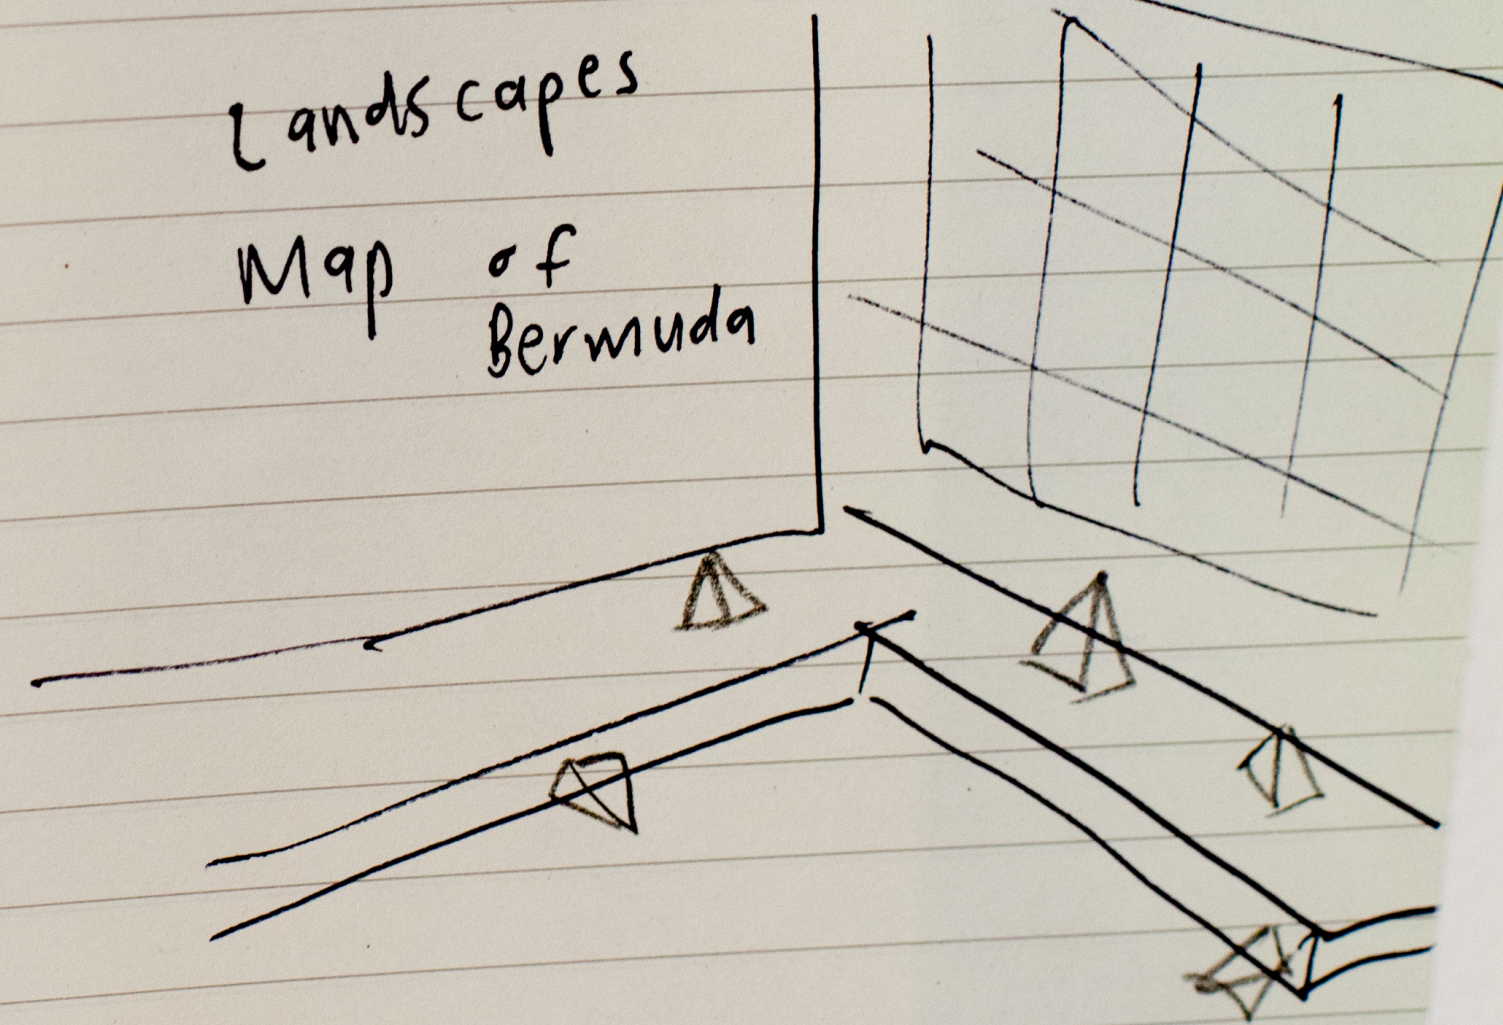 Landscapes
Map of
Bermuda